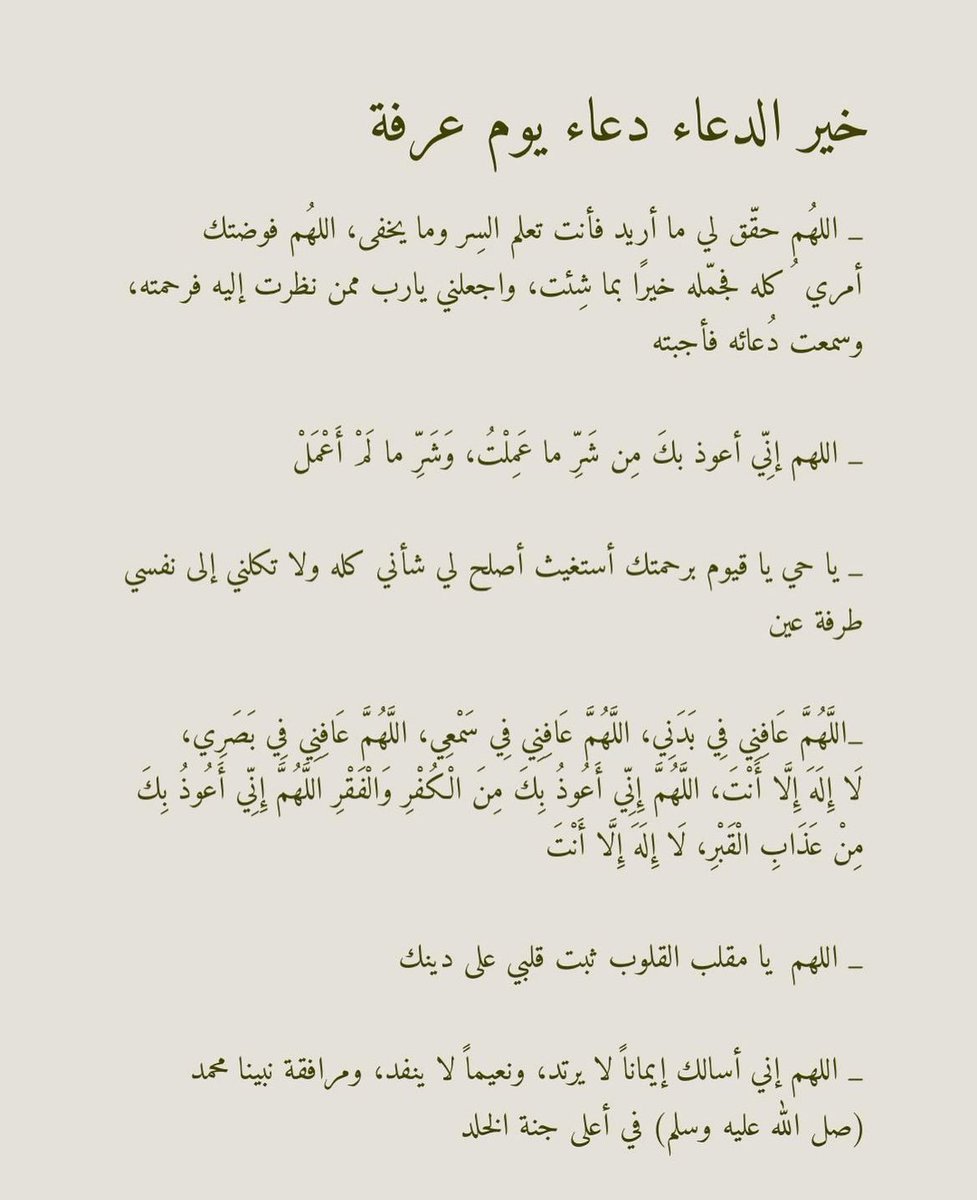 خير الدعاء دعاء يوم عرفة
_ اللهُم حقّق لي ما أريد فأنت تعلم السِر وما يخفى، اللهُم فوضتك
أمري ُ كله فجمّله خيرًا بما شِئت، واجعلني يارب ممن نظرت إليه فرحمته،
وسمعت دُعائه فأجبته
_ اللهم إنِّي أعوذ بكَ مِن شَرِّ ما عَمِلْتُ، وَشَرِّ ما لَمْ أَعْمَلْ
_ يا حي يا قيوم برحمتك أستغيث أصلح لي شأني كله ولا تكلني إلى نفسي
طرفة عين
_اللَّهُمَّ عَافِنِي فِي بَدَنِي، اللَّهُمَّ عَافِنِي فِي سَمْعِي، اللَّهُمَّ عَافِنِي فِي بَصَرِي،
لَا إِلَهَ إِلَّا أَنْتَ، اللَّهُمَّ إِنِّي أَعُوذُ بِكَ مِنَ الْكُفْرِ وَالْفَقْرِ اللَّهُمَّ إِنِّي أَعُوذُ بِكَ
مِنْ عَذَابِ الْقَبْرِ، لَا إِلَهَ إِلَّا أَنْتَ
_ اللهم يا مقلب القلوب ثبت قلبي على دينك
_ اللهم إني أسالك إيماناً لا يرتد، ونعيماً لا ينفد، ومرافقة نبينا محمد
(صل الله عليه وسلم) في أعلى جنة الخلد